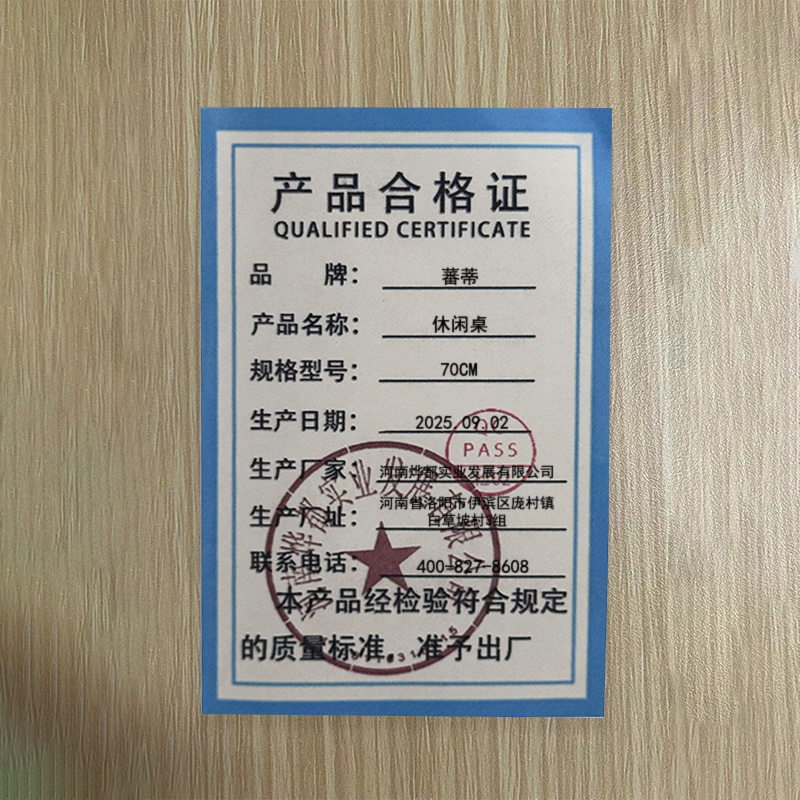 产品合格证
QUALIFIED CERTIFICATE
品 牌： 蕃蒂
产品名称： 休闲桌
规格型号： 70CM
生产日期： 2025.09.02
PASS
生产厂家： 河南烨都实业发展有限公司
生产厂址： 河南省洛阳市伊滨区庞村镇
白草坡村3组
联系电话： 400-827-8608
河南烨都实业发展有限公司
本产品经检验符合规定
的质量标准。准予出厂